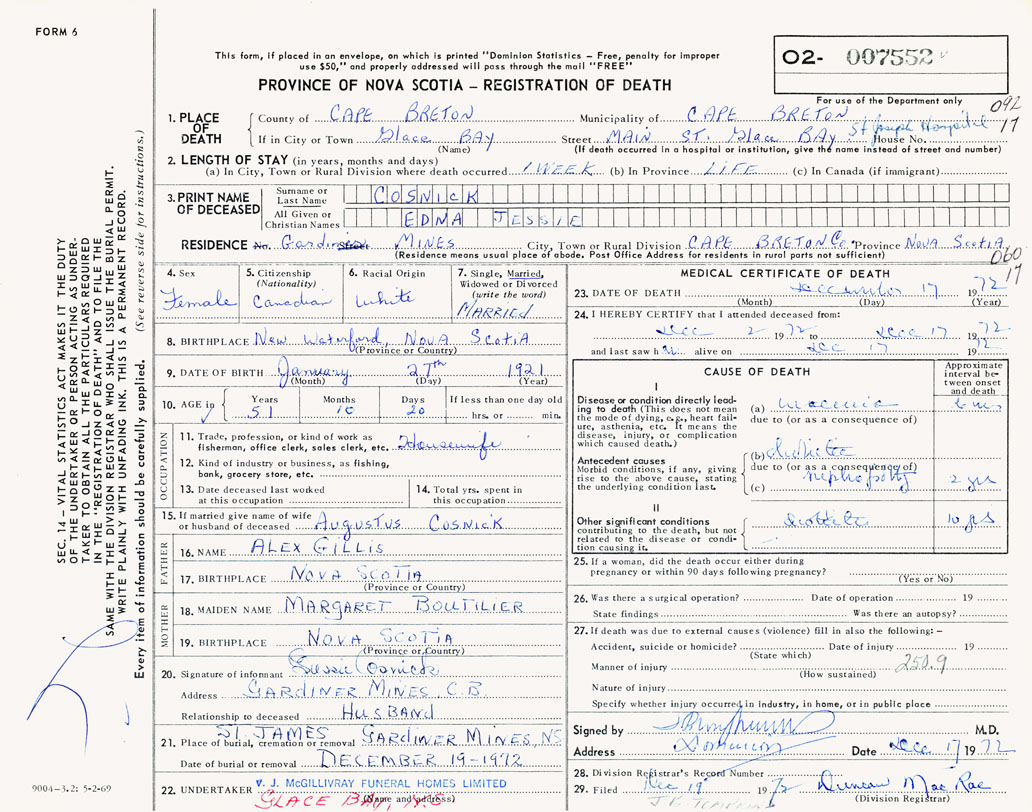 FORM 6
This form, if placed in an envelope, on which is printed "Dominion Statistics – Free, penalty for improper
use $50," and properly addressed will pass through the mail "FREE"
PROVINCE OF NOVA SCOTIA – REGISTRATION OF DEATH
O2- 007552
For use of the Department only
092
17
1. PLACE OF DEATH
County of CAPE BRETON Municipality of CAPE BRETON
If in City or Town Glace BAY Street MAIN ST. Glace BAY. St Joseph Hospital House No.
(Name) (If death occurred in a hospital or institution, give the name instead of street and number)
2. LENGTH OF STAY (in years, months and days)
(a) In City, Town or Rural Division where death occurred 1 WEEK (b) In Province LIFE (c) In Canada (if immigrant)
3. PRINT NAME OF DECEASED
Surname or Last Name COSNICK
All Given or Christian Names EDNA JESSIE
RESIDENCE No. Gardiner Street MINES City, Town or Rural Division CAPE BRETON Co. Province NOVA SCOTIA
(Residence means usual place of abode. Post Office Address for residents in rural parts not sufficient)
060
17
4. Sex
Female
5. Citizenship
(Nationality)
Canadian
6. Racial Origin
White
7. Single, Married,
Widowed or Divorced
(write the word)
MARRIED
8. BIRTHPLACE New Waterford, NOVA SCOTIA
(Province or Country)
9. DATE OF BIRTH January 27th 1921
(Month) (Day) (Year)
10. AGE in
Years Months Days If less than one day old
51 10 20 hrs. or min.
OCCUPATION
11. Trade, profession, or kind of work as
fisherman, office clerk, sales clerk, etc. Housewife
12. Kind of industry or business, as fishing,
bank, grocery store, etc.
13. Date deceased last worked
at this occupation
14. Total yrs. spent in
this occupation
15. If married give name of wife
or husband of deceased AUGUSTUS COSNICK
FATHER
16. NAME ALEX GILLIS
17. BIRTHPLACE NOVA SCOTIA
(Province or Country)
MOTHER
18. MAIDEN NAME MARGARET BOUTILIER
19. BIRTHPLACE NOVA SCOTIA
(Province or Country)
20. Signature of informant Cosnick
Address GARDINER MINES C.B.
Relationship to deceased HUSBAND
21. Place of burial, cremation or removal ST. JAMES GARDINER MINES, NS
Date of burial or removal DECEMBER 19-1972
22. UNDERTAKER V. J. McGILLIVRAY FUNERAL HOMES LIMITED
GLACE BAY, N.S.
(Name and address)
MEDICAL CERTIFICATE OF DEATH
23. DATE OF DEATH December 17 1972
(Month) (Day) (Year)
24. I HEREBY CERTIFY that I attended deceased from:
Dec 2 1972 to Dec 17 1972
and last saw h er alive on Dec 17 1972
CAUSE OF DEATH
Approximate interval between onset and death
I
Disease or condition directly leading to death (This does not mean the mode of dying, e.g., heart failure, asthenia, etc. It means the disease, injury, or complication which caused death.)
(a)
due to (or as a consequence of)
Antecedent causes
Morbid conditions, if any, giving rise to the above cause, stating the underlying condition last.
(b) diabetic
due to (or as a consequence of)
(c) nephropathy 2 yrs
II
Other significant conditions
contributing to the death, but not related to the disease or condition causing it.
10 yrs
25. If a woman, did the death occur either during
pregnancy or within 90 days following pregnancy?
(Yes or No)
26. Was there a surgical operation? Date of operation 19
State findings Was there an autopsy?
27. If death was due to external causes (violence) fill in also the following: –
Accident, suicide or homicide? Date of injury 19
(State which)
Manner of injury 250.9
(How sustained)
Nature of injury
Specify whether injury occurred in industry, in home, or in public place
Signed by M.D.
Address Dominion Date Dec 17 1972
28. Division Registrar's Record Number
29. Filed Dec 19 1972 Duncan MacRae
(Division Registrar)
SEC. 14 – VITAL STATISTICS ACT MAKES IT THE DUTY
OF THE UNDERTAKER OR PERSON ACTING AS UNDER-
TAKER TO OBTAIN ALL THE PARTICULARS REQUIRED
IN THE "REGISTRATION OF DEATH" AND TO FILE THE
SAME WITH THE DIVISION REGISTRAR WHO SHALL ISSUE THE BURIAL PERMIT.
WRITE PLAINLY WITH UNFADING INK. THIS IS A PERMANENT RECORD.
Every item of information should be carefully supplied. (See reverse side for instructions.)
9004-3.2: 5-2-69